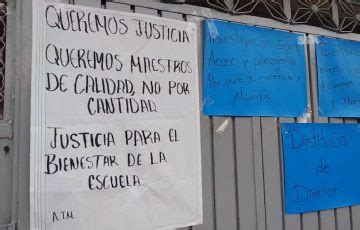 QUEREMOS JUSTICIA
QUEREMOS MAESTROS
DE CALIDAD, NO POR
CANTIDAD
JUSTICIA PARA EL
BIENESTAR DE LA
ESCUELA.
A.T.M.
Investigacion sobre
Acoso y
Por parte de maestros y
Alumnos
Destitucion
de
Director